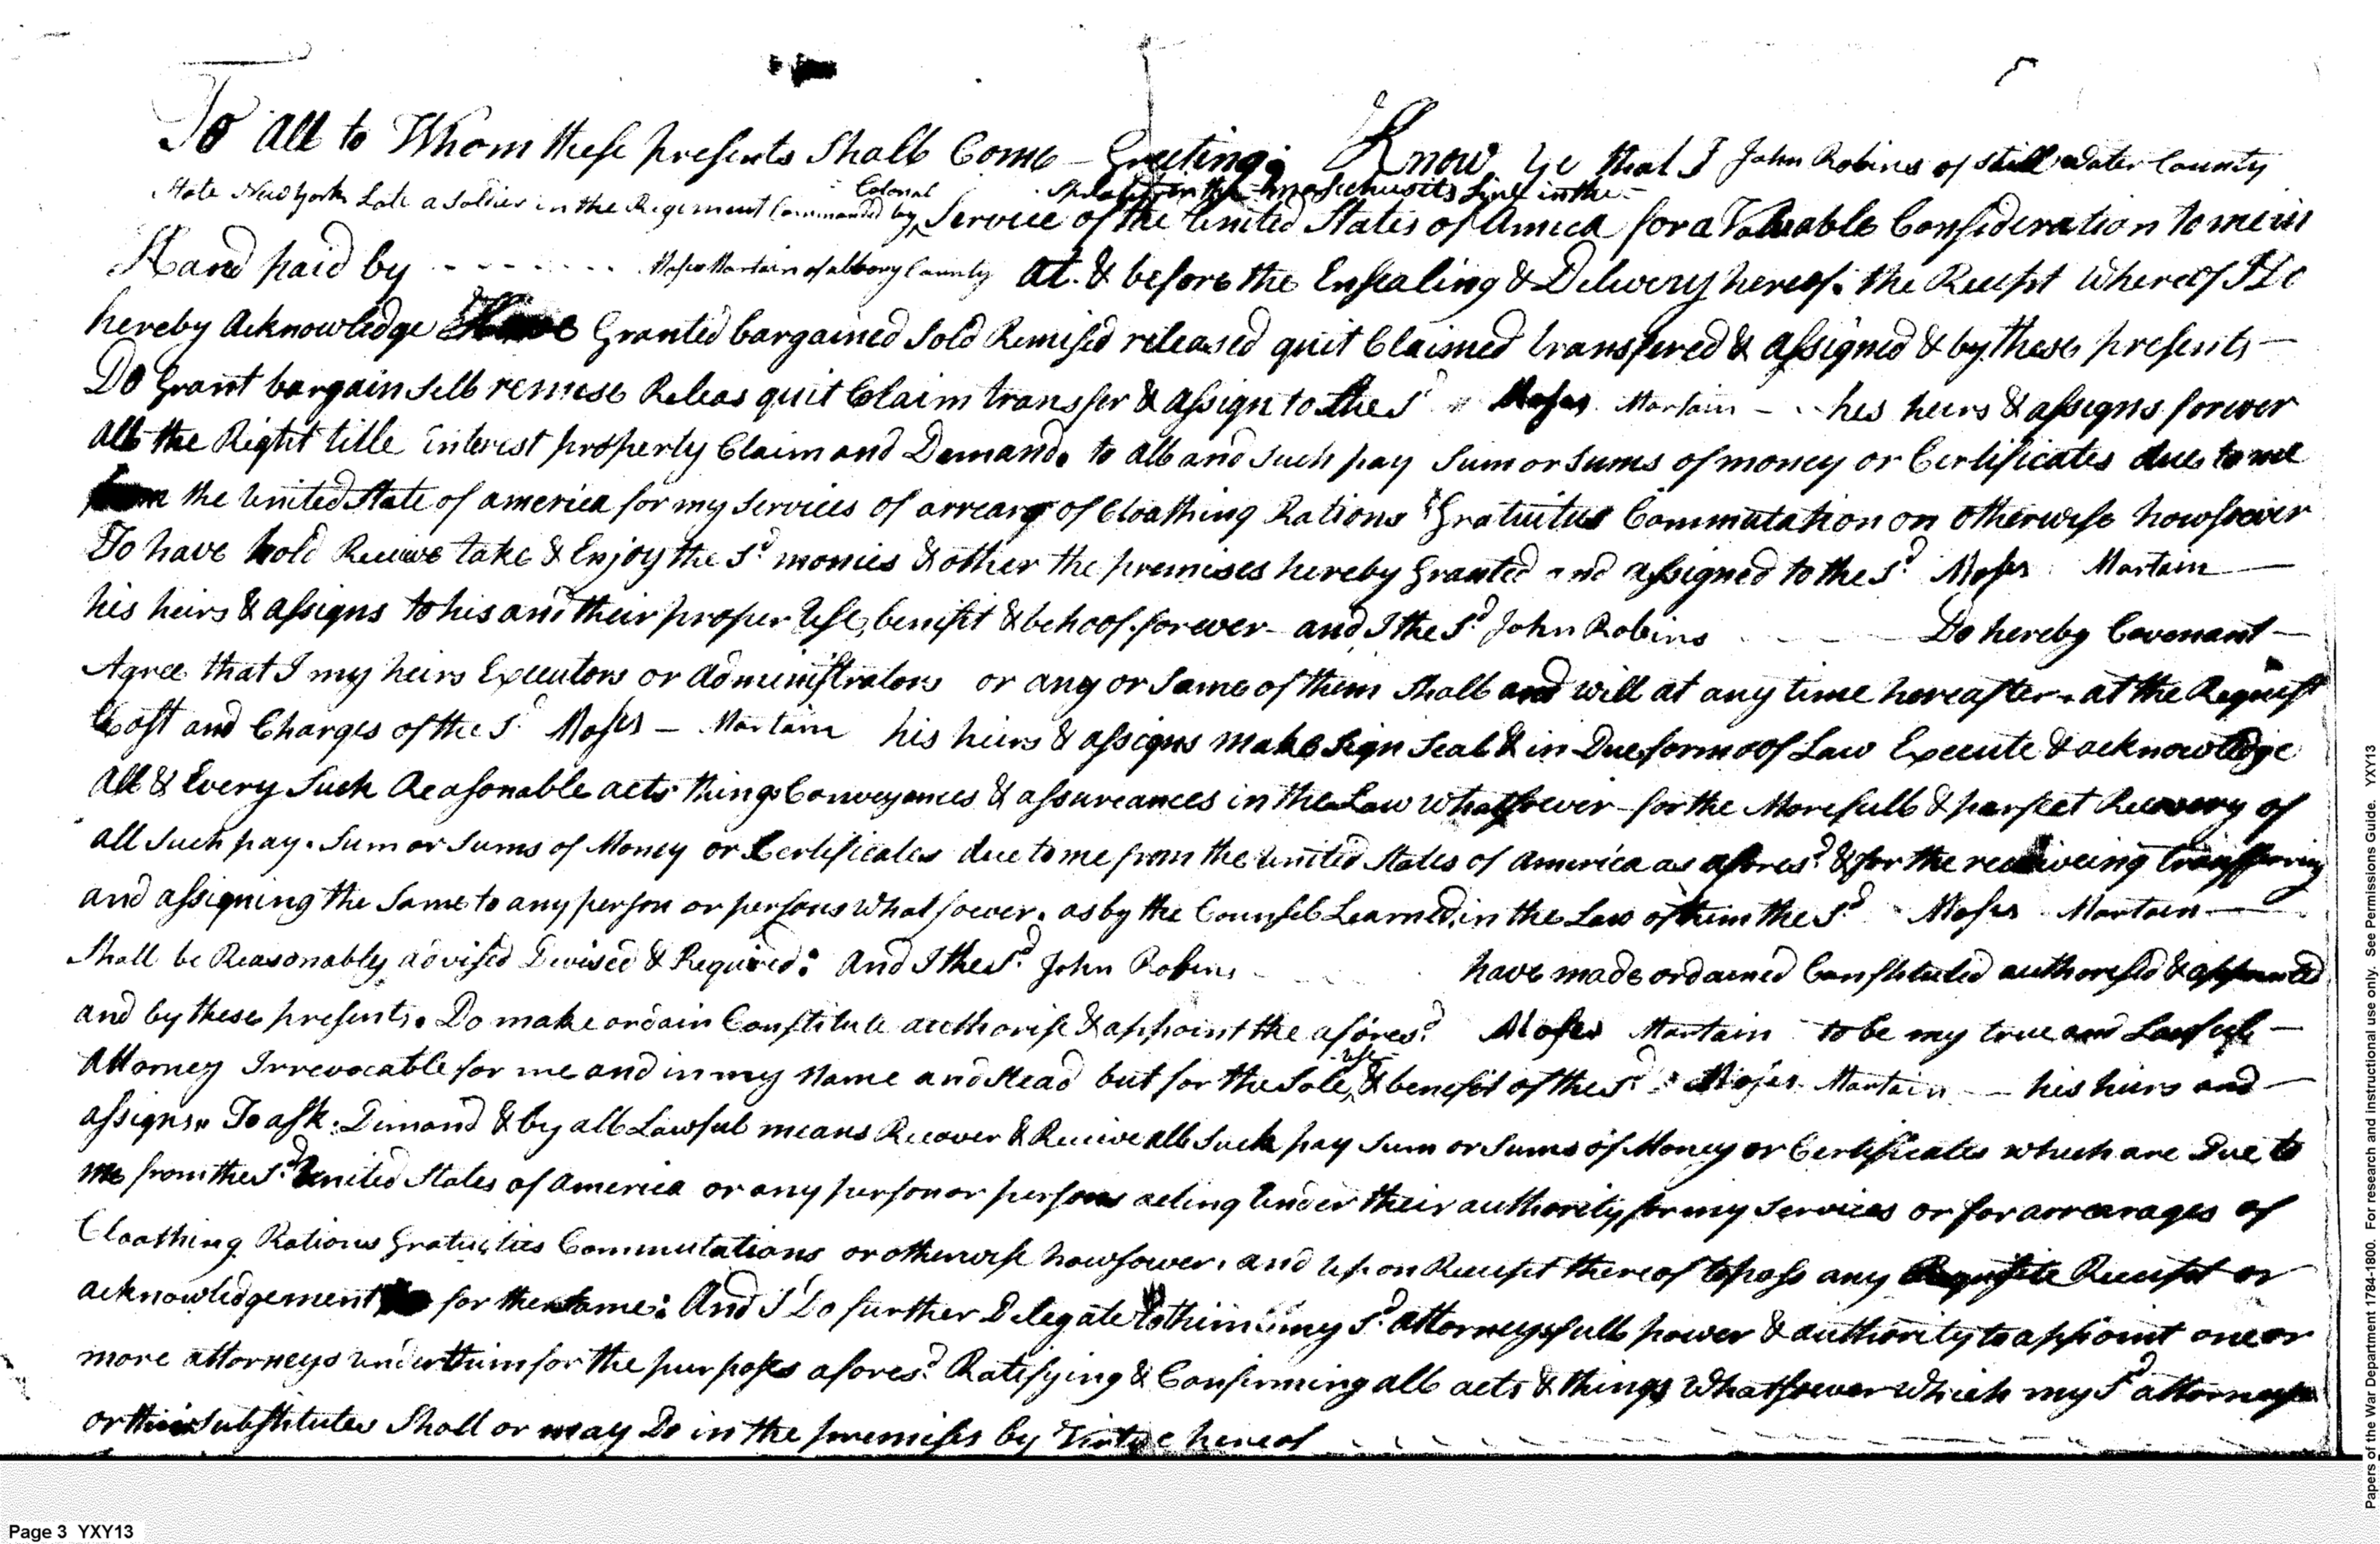 To all to Whom these presents Shall Come – Greeting; Know Ye that I John Robins of still water County
State New York Late a Soldier in the Regement Commanded by Colonal in the Massachusits Line in the
Service of the United States of America for a Valuable Consideration to me in
Hand paid by - - - - - - - Moses Martain of albony County at. & before the Ensealing & Delivery hereof. the Receipt Whereof I Do
hereby acknowledge Have Granted bargained Sold Remised released quit Claimed transfered & assigned & by these presents –
Do Grant bargain Sell remise Releas quit Claim transfer & assign to the Sd Moses Martain – his heirs & assigns forever
all the Right title interest property Claim and Demand. to all and Such pay Sum or Sums of money or Certificates due to me
from the United State of america for my Services of arrears of Cloathing Rations Gratuitus Commutation on otherwise howsoever
To have hold Receive take & Enjoy the Sd monies & other the premises hereby Granted and assigned to the Sd Moses Martain –
his heirs & assigns to his and their proper Use, benifit & behoof. forever – and I the Sd John Robins – – – Do hereby Covenant –
Agree that I my heirs Executors or administrators or any or Some of them Shall and will at any time hereafter. at the Request
Cost and Charges of the Sd Moses – Martain his heirs & assigns make Sign Seal & in Due form of Law Execute & acknowledge
all & Every Such Reasonable acts things Conveyances & assureances in the Law whatsoever – for the More full & perfect Recovery of
all Such pay. Sum or Sums of Money or Certificates due to me from the United States of America as afores.d & for the receiveing transferring
and assigning the Same to any person or persons What soever. as by the Counsel Learned in the Law of them the Sd Moses Martain –
Shall be Reasonably advised Devised & Required: And I the Sd John Robins have made ordained Constituted authorised & appointed
and by these presents. Do make ordain Constitute authorise & appoint the afores.d Moses Martain to be my true and Lawfull –
Attorney Irrevocable for me and in my Name and Stead but for the Sole use & benefit of the Sd Moses Martain – his heirs and –
assigns. To ask. Dimand & by all Lawful means Recover & Receive all Such pay Sum or Sums of Money or Certificates which are Due to
me from the Sd United States of America or any person or persons acting Under their authority for my Services or for arrearages of
Cloathing Rations Gratuities Commutations or otherwise howsoever. and upon Receipt thereof to pass any Requisite Receipt or
acknowledgement for the Same: And I Do further Delegate to him my Sd attorney full power & authority to appoint one or
more attorneys under him for the purposes afores.d Ratifying & Confirming all acts & things Whatsoever Which my Sd attorneys
or their Substitutes Shall or may Do in the premises by Virtue hereof
Page 3 YXY13
Papers of the War Department 1784-1800. For research and instructional use only. See Permissions Guide. YXY13